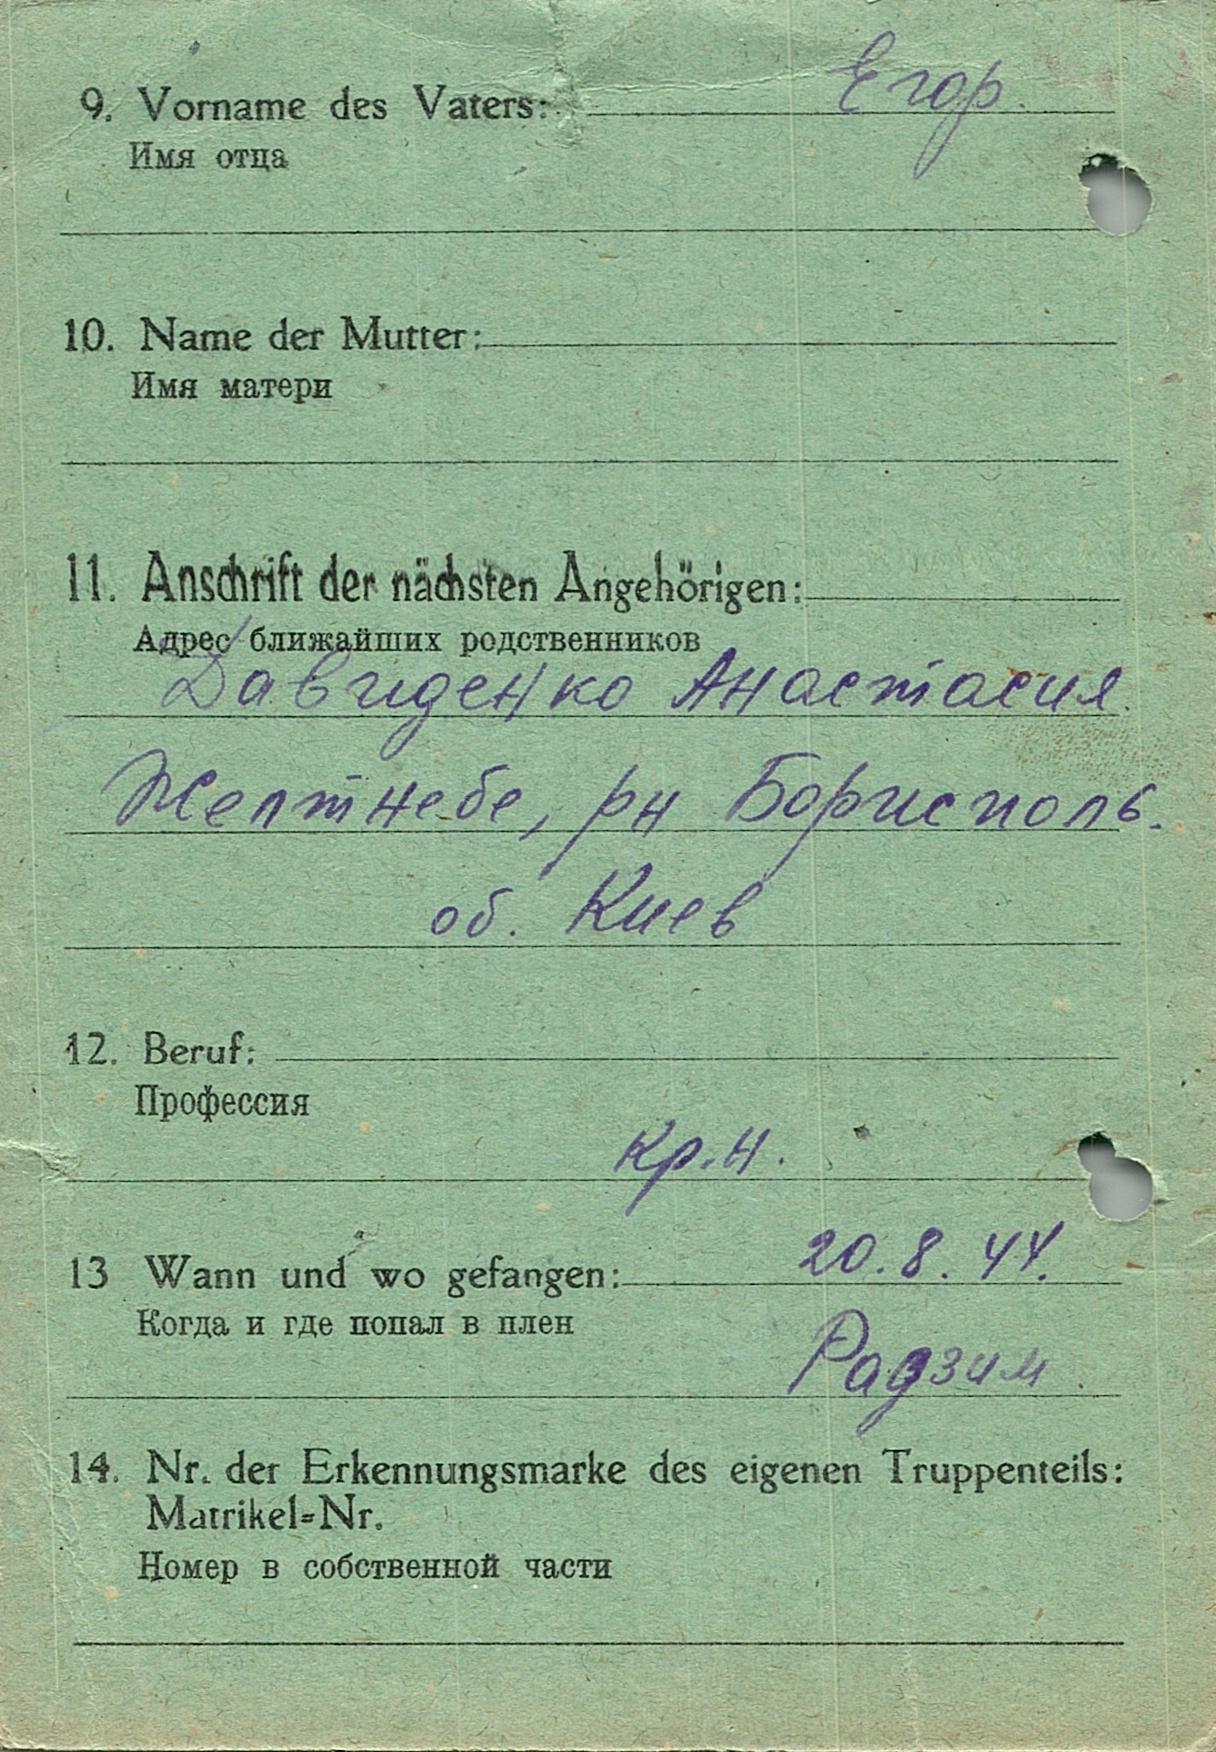 9. Vorname des Vaters: Егор.
Имя отца
10. Name der Mutter:
Имя матери
11. Anschrift der nächsten Angehörigen:
Адрес ближайших родственников
Давиденко Анастасия.
Желтнебе, рн Борисполь.
об. Киев
12. Beruf:
Профессия
кр.н.
13 Wann und wo gefangen: 20.8.44.
Когда и где попал в плен
Радзим.
14. Nr. der Erkennungsmarke des eigenen Truppenteils:
Matrikel=Nr.
Номер в собственной части